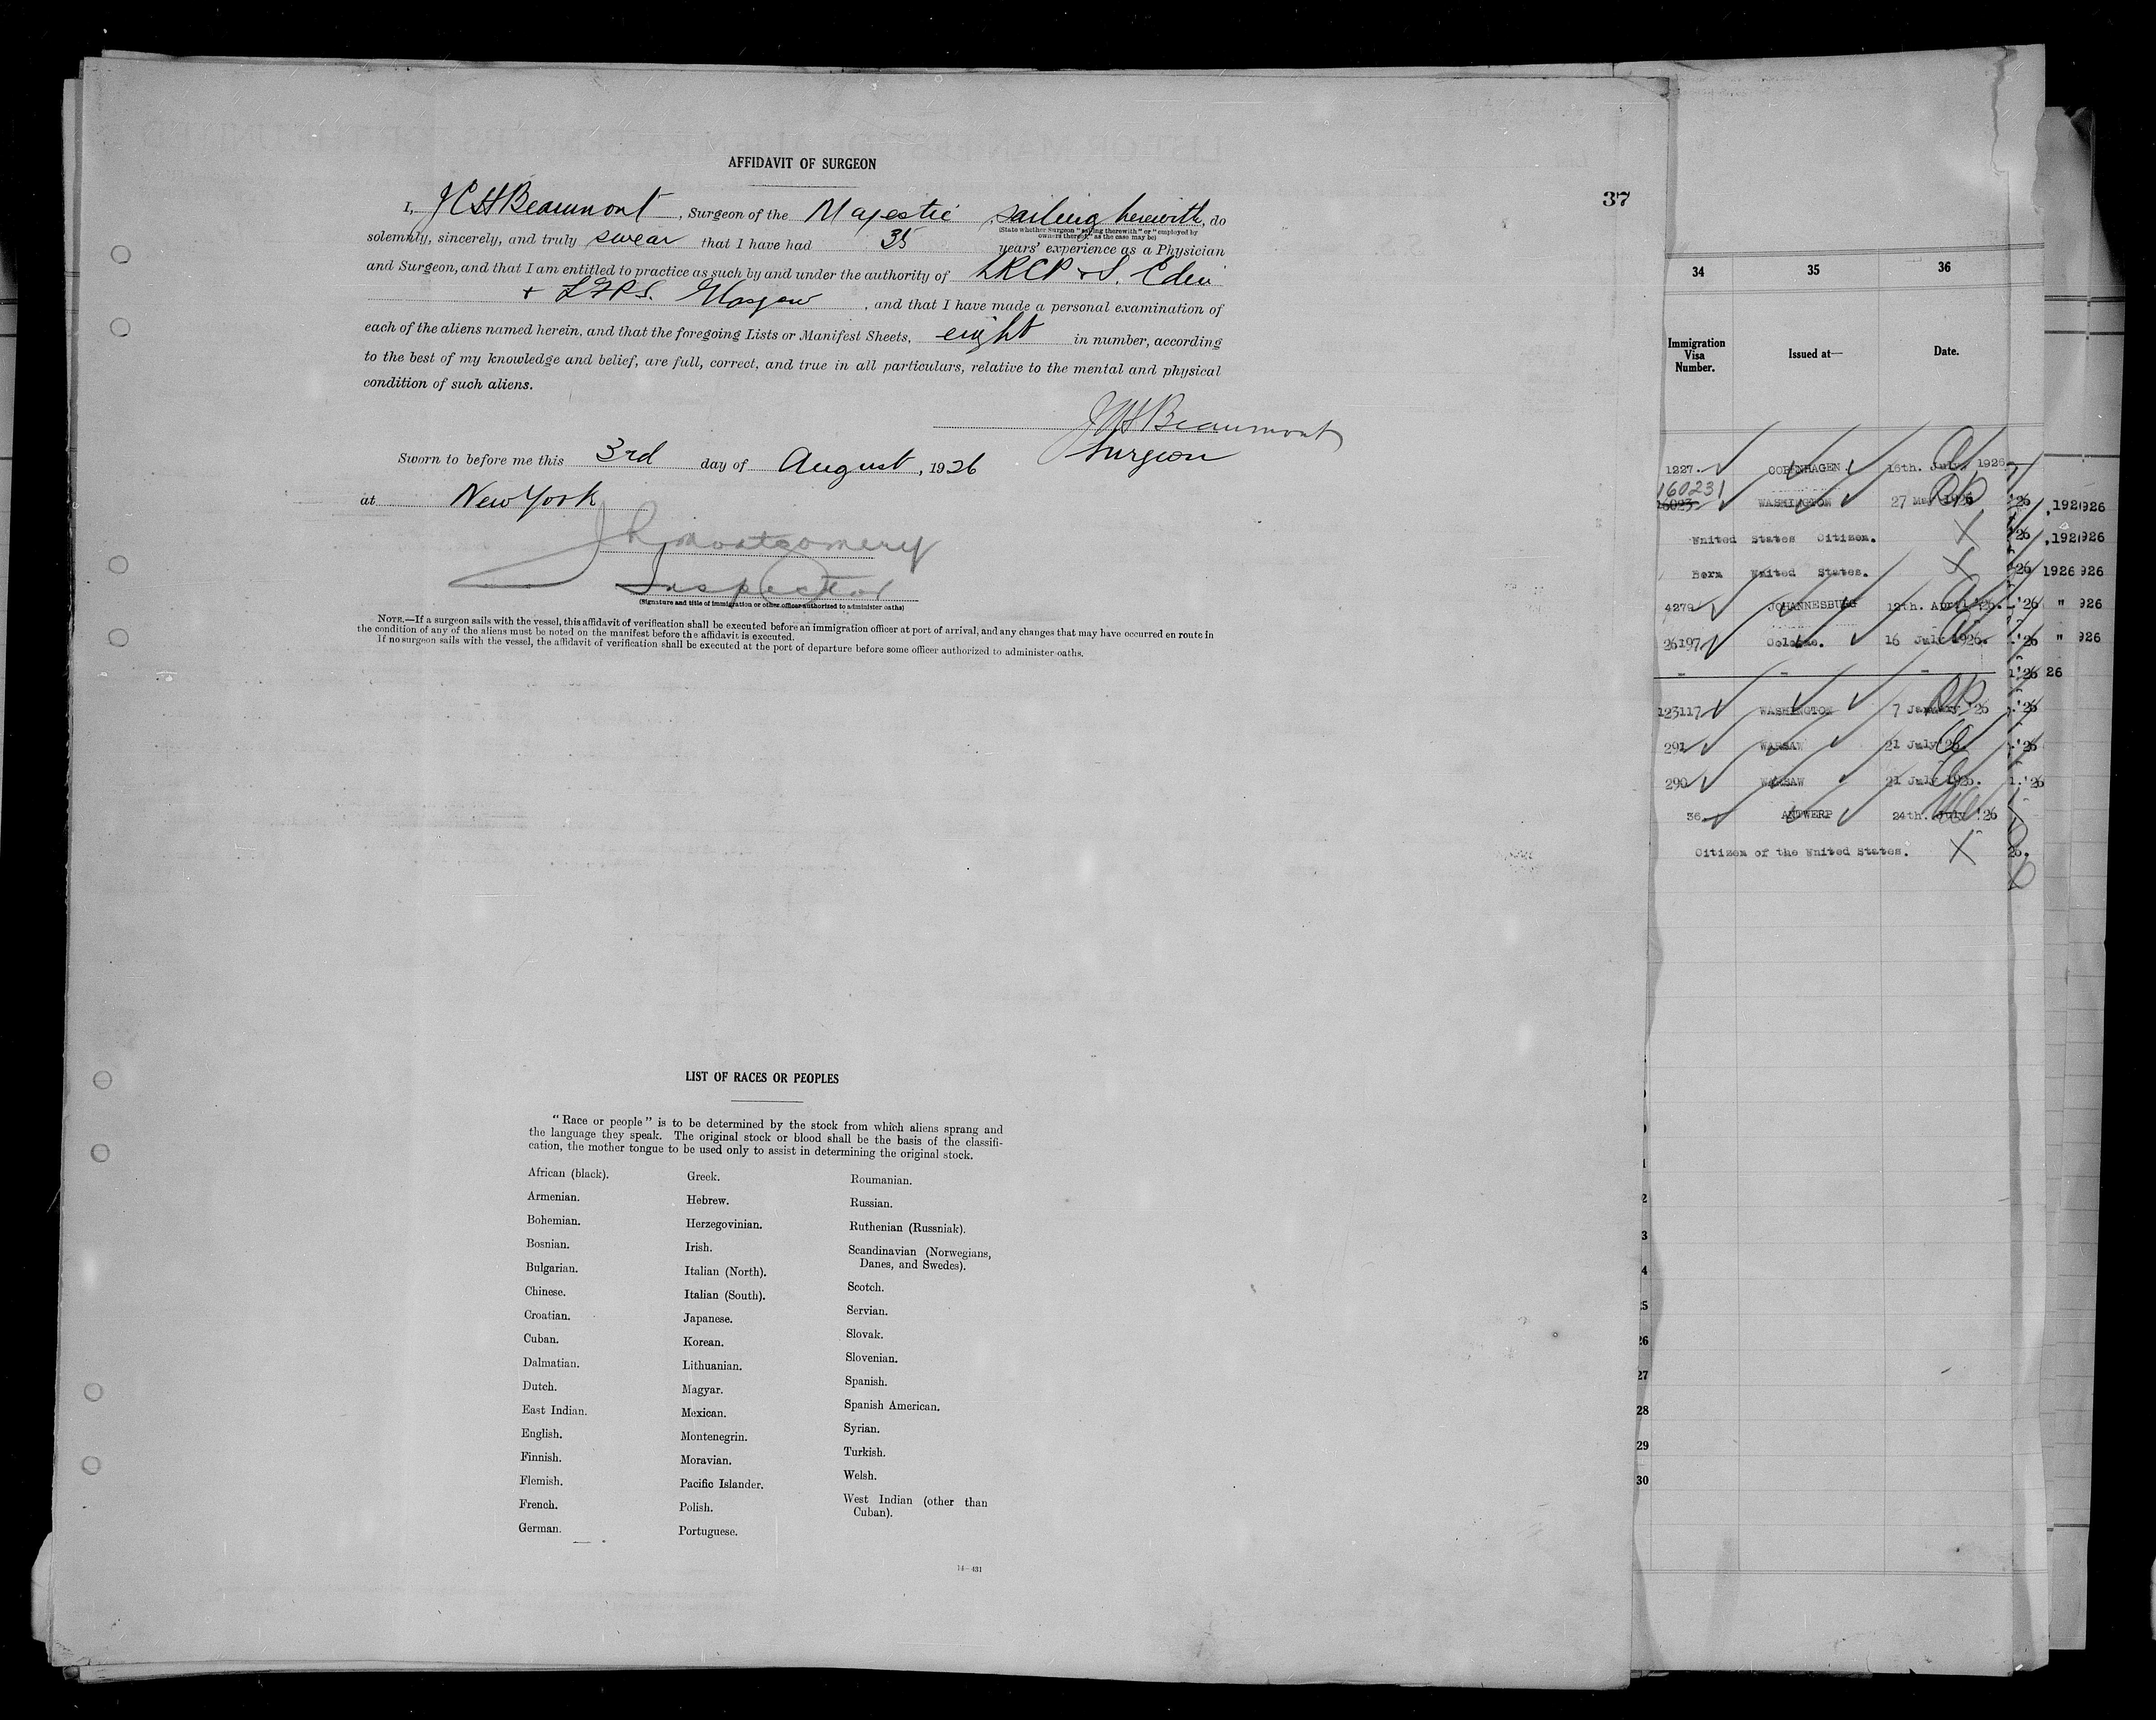 AFFIDAVIT OF SURGEON
37
I, JCH Beaumont, Surgeon of the Majestic, sailing herewith, do
(State whether Surgeon "sailing therewith" or "employed by
owners thereof," as the case may be)
solemnly, sincerely, and truly swear that I have had 35 years' experience as a Physician
and Surgeon, and that I am entitled to practice as such by and under the authority of LRCP & S. Edin
+ LFPS. Glasgow, and that I have made a personal examination of
each of the aliens named herein, and that the foregoing Lists or Manifest Sheets, eight in number, according
to the best of my knowledge and belief, are full, correct, and true in all particulars, relative to the mental and physical
condition of such aliens.
JCH Beaumont
Surgeon
Sworn to before me this 3rd day of August, 1926
at New York
Montgomery
Inspector
(Signature and title of immigration or other officer authorized to administer oaths)
NOTE.—If a surgeon sails with the vessel, this affidavit of verification shall be executed before an immigration officer at port of arrival, and any changes that may have occurred en route in
the condition of any of the aliens must be noted on the manifest before the affidavit is executed.
If no surgeon sails with the vessel, the affidavit of verification shall be executed at the port of departure before some officer authorized to administer oaths.
LIST OF RACES OR PEOPLES
"Race or people" is to be determined by the stock from which aliens sprang and
the language they speak. The original stock or blood shall be the basis of the classifi-
cation, the mother tongue to be used only to assist in determining the original stock.
African (black).
Armenian.
Bohemian.
Bosnian.
Bulgarian.
Chinese.
Croatian.
Cuban.
Dalmatian.
Dutch.
East Indian.
English.
Finnish.
Flemish.
French.
German.
Greek.
Hebrew.
Herzegovinian.
Irish.
Italian (North).
Italian (South).
Japanese.
Korean.
Lithuanian.
Magyar.
Mexican.
Montenegrin.
Moravian.
Pacific Islander.
Polish.
Portuguese.
Roumanian.
Russian.
Ruthenian (Russniak).
Scandinavian (Norwegians,
Danes, and Swedes).
Scotch.
Servian.
Slovak.
Slovenian.
Spanish.
Spanish American.
Syrian.
Turkish.
Welsh.
West Indian (other than
Cuban).
14—431
34 35 36
Immigration
Visa
Number.
Issued at—
Date.
1227. COPENHAGEN 16th. July, 1926
160231
16023 WASHINGTON 27 May 1926
United States Citizen. X
Born United States. X
4279 JOHANNESBURG 12th. April '26.
26197 Cologne. 16 July 1926.
123117 WASHINGTON 7 January '26
291 WARSAW 21 July 26.
290 WARSAW 21 July 1926.
36 ANTWERP 24th. July '26
Citizen of the United States. X
2
3
4
25
26
27
28
29
30